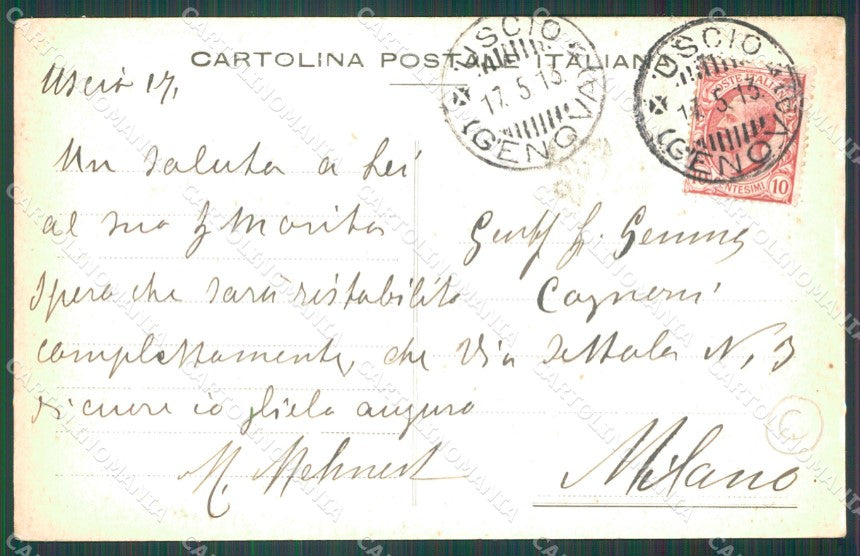 CARTOLINA POSTALE ITALIANA
USCIO
17.5.15
(GENOVA)
USCIO
17.5.15
(GENOVA)
POSTE ITALIANE
CENTESIMI 10
Uscio 17,
Un saluto a Lei
al suo Marito
Spero che sarà ristabilito
complettamente, che
di cuore io glielo auguro
M. Mehnert
Gent Gemma
Cagnoni
Via Settala N. 3
Milano
C
CARTOLINOMANIA